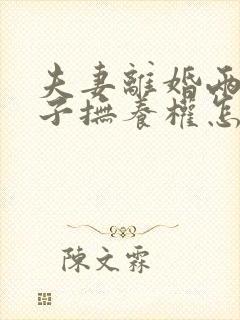 夫妻離婚兩
子撫養權怎
陳文霖